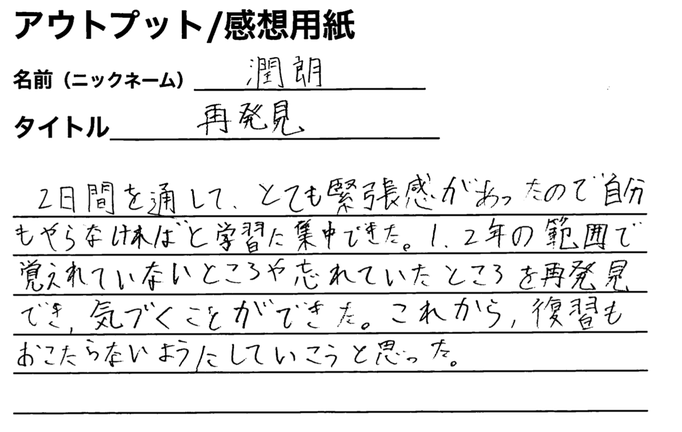 アウトプット/感想用紙
名前（ニックネーム） 潤朗
タイトル 再発見
2日間を通して、とても緊張感があったので自分
もやらなければと学習に集中できた。1、2年の範囲で
覚えれていないところや忘れていたところを再発見
でき、気づくことができた。これから、復習も
おこたらないようにしていこうと思った。